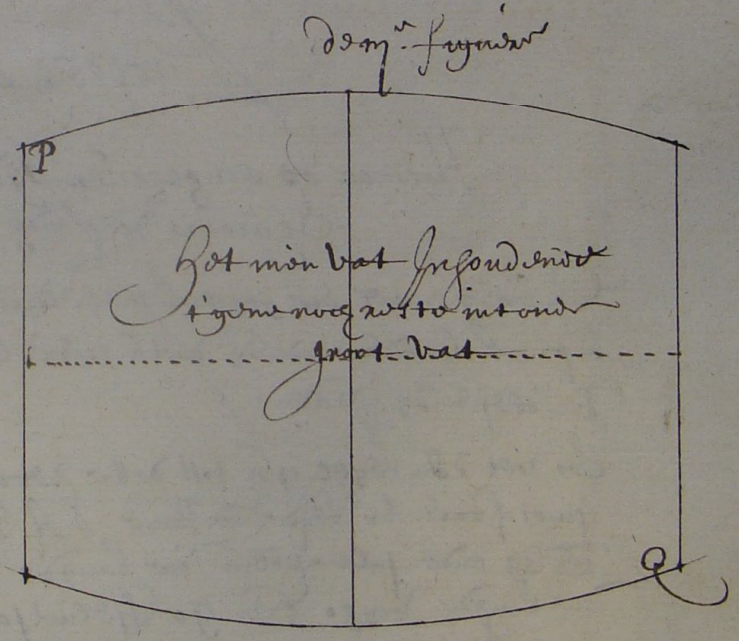 de m.e figuere
P
Het nieu vat Inhoudende
t'gene noch reste int oude
groot vat
Q